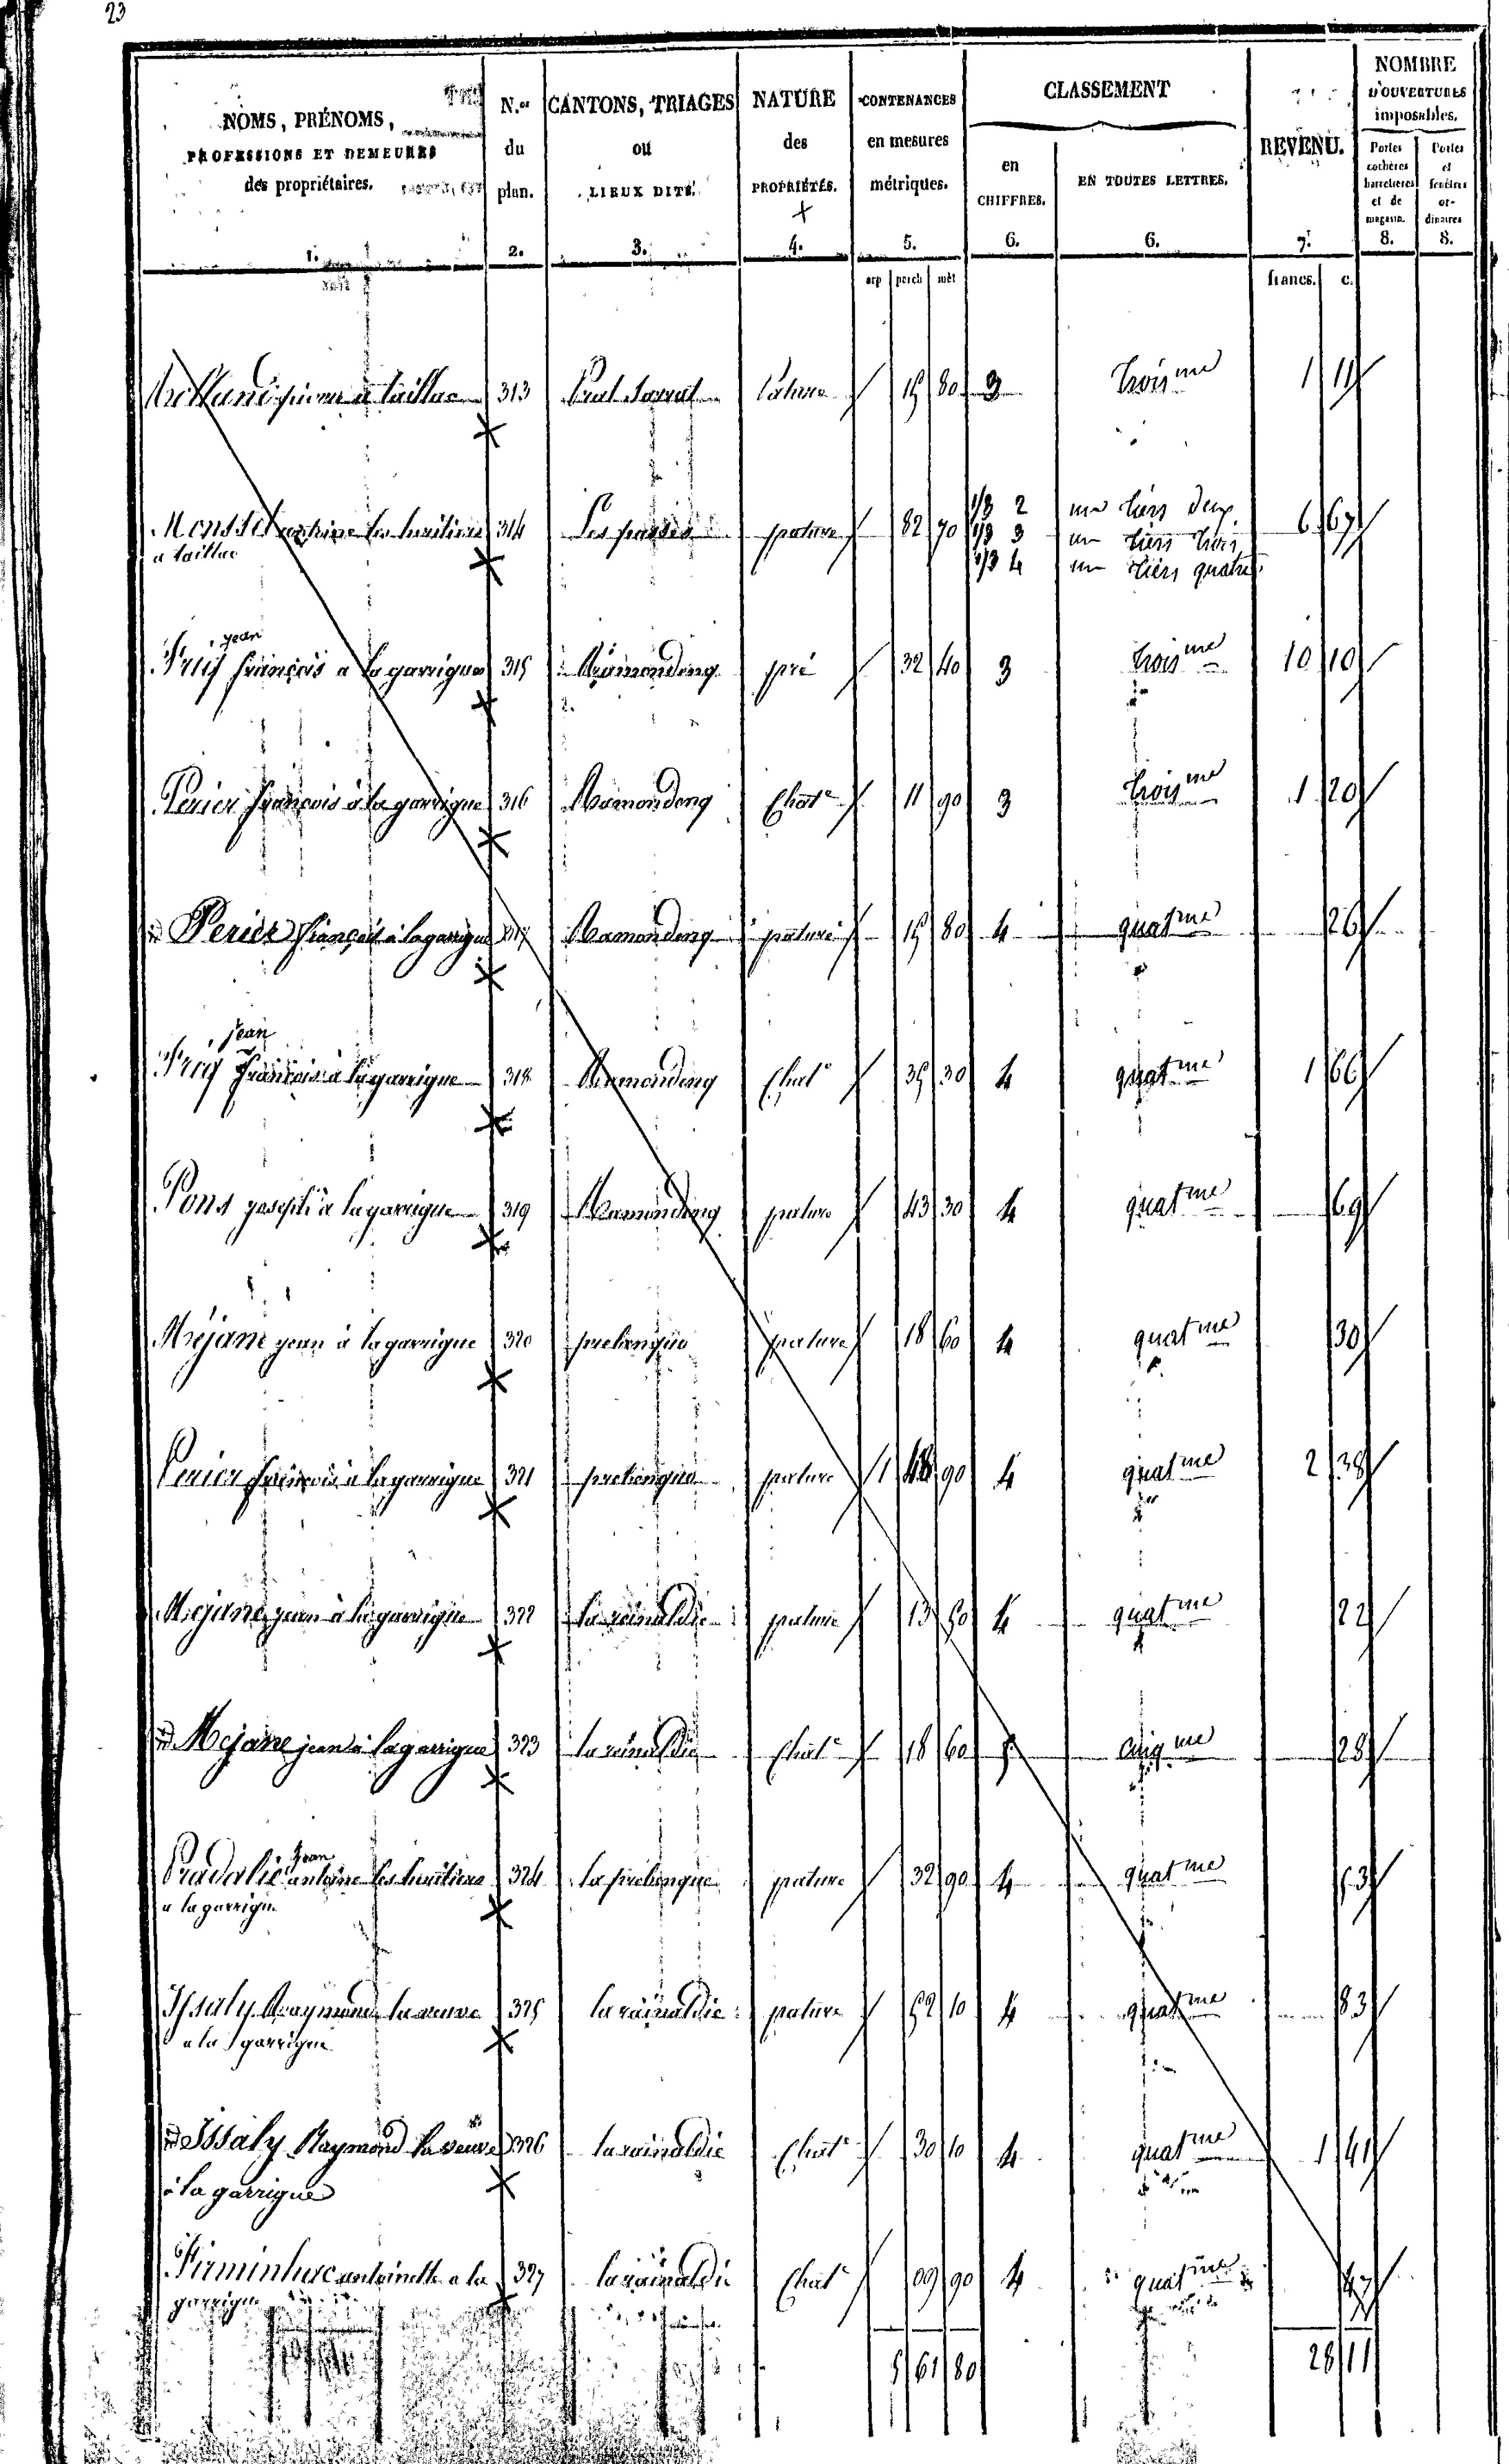 23
NOMS, PRÉNOMS,
PROFESSIONS ET DEMEURES
des propriétaires.
1.
N.os
du
plan.
2.
CANTONS, TRIAGES
OU
LIEUX DITS.
3.
NATURE
des
PROPRIÉTÉS.
4.
CONTENANCES
en mesures
métriques.
5.
CLASSEMENT
en
CHIFFRES.
6.
EN TOUTES LETTRES.
6.
REVENU.
7.
NOMBRE
D'OUVERTURES
imposables.
Portes
cochères
et de
magasin.
8.
Portes
et
fenêtres
or-
dinaires
8.
arp perch mèt
francs. c.
à taillac 313 15 80 3 trois me 1 11
les heritiers 314 pature 82 70 1/3 2 un tiers deux 6 67
a taillac 1/3 3 un tiers trois
1/3 4 un tiers quatre
jean
françois a la garrigue 315 pré 32 40 3 trois me 10 10
Perier françois à la garrigue 316 Chat.e 11 90 3 trois me 1 20
id Perier françois à la garrigue 317 pature 15 80 4 quat me 26
jean
françois a la garrigue 318 Chat.e 35 30 4 quat me 1 66
Pons joseph à la garrigue 319 pature 43 30 4 quat me 69
Mejane jean à la garrigue 320 pature 18 60 4 quat me 30
Perier françois à la garrigue 321 pature 1 90 4 quat me 2 38
Mejane jean à la garrigue 322 la rainaldie pature 13 4 quat me 22
id Mejane jean à la garrigue 323 la rainaldie Chat.e 18 60 5 cinq me 28
jean
Pradalié antoine les heritiers 324 pature 32 90 4 quat me 53
a la garrigue
Issaly Raymond la veuve 325 la rainaldie pature 52 10 4 quat me 83
a la garrigue
id Issaly Raymond la veuve 326 la rainaldie Chat.e 30 10 4 quat me 1 41
à la garrigue
antoinette a la 327 la rainaldie Chat.e 09 90 4 quat me 47
garrigue
5 61 80 28 11